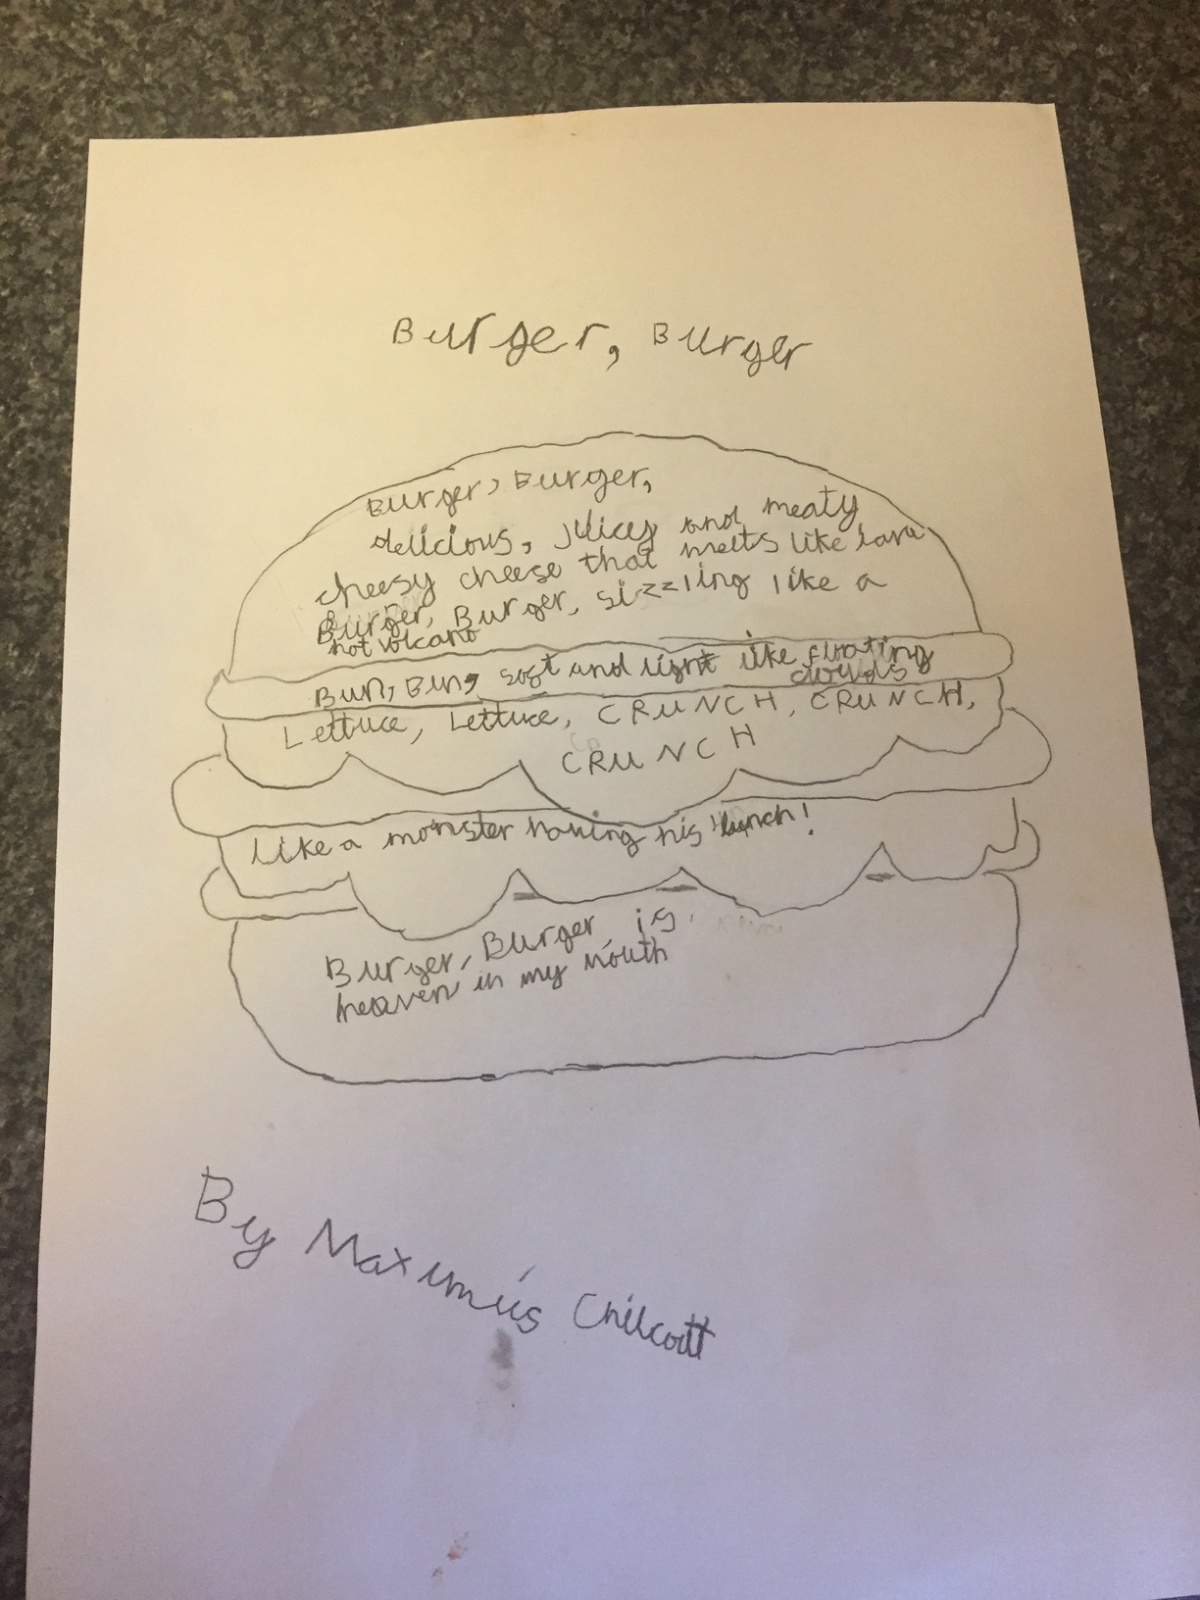 Burger, Burger
Burger, Burger,
delicious, juicey and meaty
cheesy cheese that melts like lava
Burger, Burger, sizzling like a
hot volcano
Bun, Bun, soft and light like floating
clouds
Lettuce, Lettuce, CRUNCH, CRUNCH,
CRUNCH
Like a monster having his lunch!
Burger, Burger is
heaven in my mouth
By Maximus Chilcott